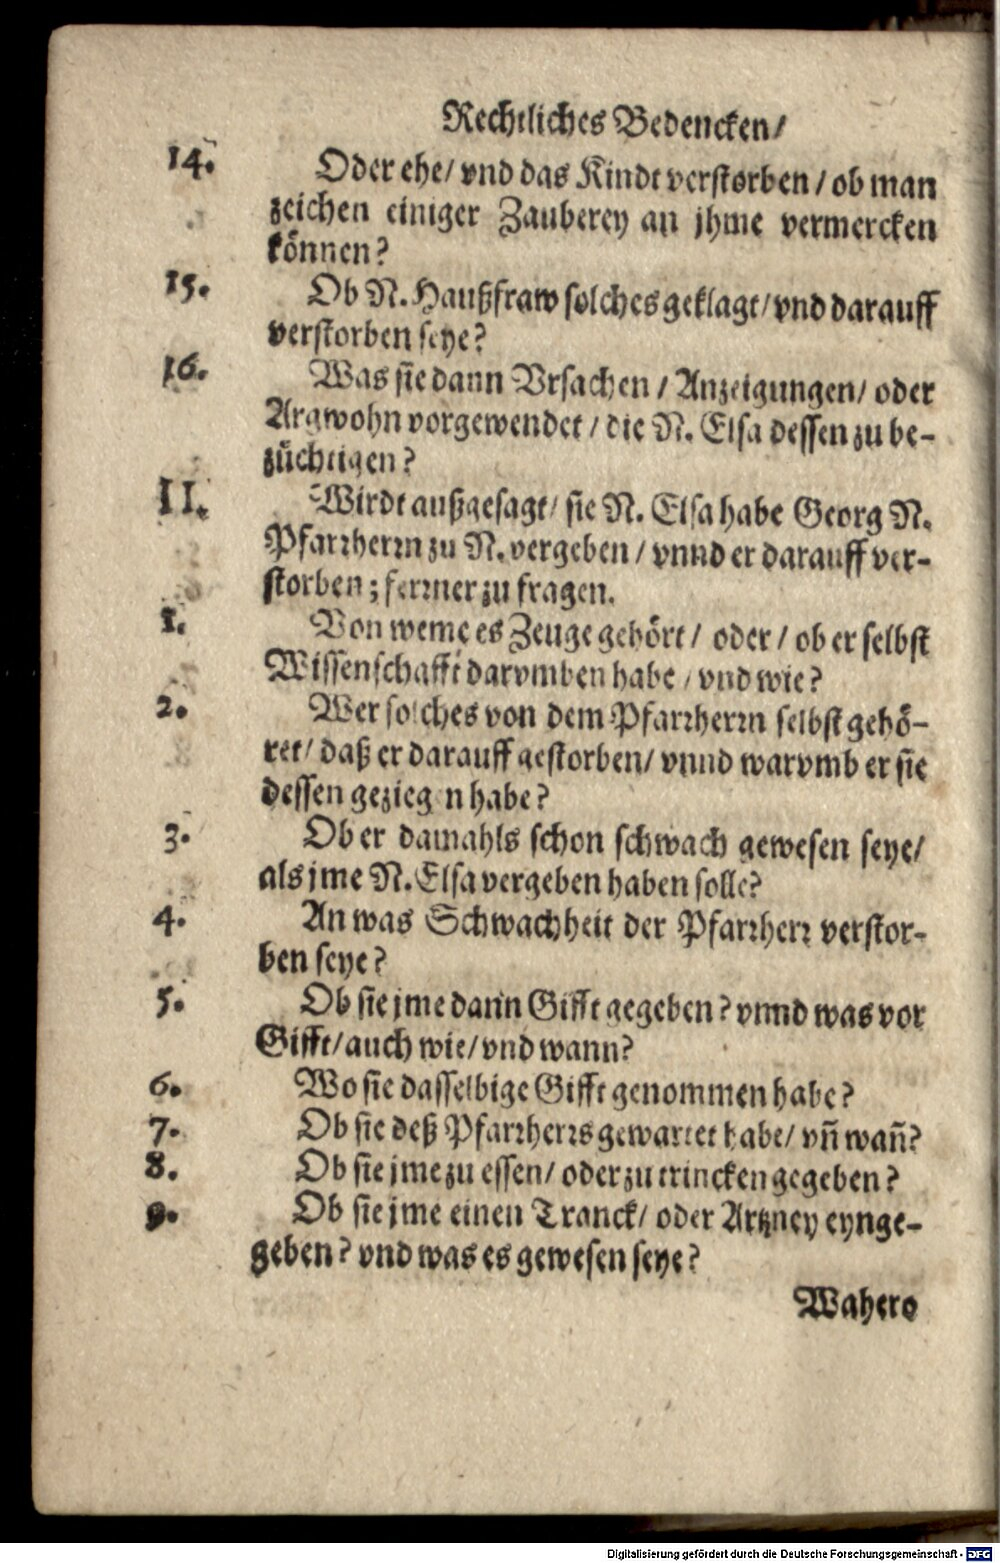 Rechtliches Bedencken/
14. Oder ehe/ vnd das Kindt verstorben/ ob man
zeichen einiger Zauberey an jhme vermercken
können?
15. Ob N. Haußfraw solches geklagt/ vnd darauff
verstorben seye?
16. Was sie dann Vrsachen/ Anzeigungen/ oder
Argwohn vorgewendet/ die N. Elsa dessen zu be-
züchtigen?
II. Wirdt außgesagt/ sie N. Elsa habe Georg N.
Pfarrherrn zu N. vergeben/ vnnd er darauff ver-
storben; ferrner zu fragen.
1. Von weme es Zeuge gehört/ oder/ ob er selbst
Wissenschafft darvmben habe/ vnd wie?
2. Wer solches von dem Pfarrherrn selbst gehö-
ret/ daß er darauff gestorben/ vnnd warvmb er sie
dessen gezieg n habe?
3. Ob er damahls schon schwach gewesen seye/
als jme N. Elsa vergeben haben solle?
4. An was Schwachheit der Pfarrherr verstor-
ben seye?
5. Ob sie jme dann Gifft gegeben? vnnd was vor
Gifft/ auch wie/ vnd wann?
6. Wo sie dasselbige Gifft genommen habe?
7. Ob sie deß Pfarrherrs gewartet habe/ vñ wañ?
8. Ob sie jme zu essen/ oder zu trincken gegeben?
9. Ob sie jme einen Tranck/ oder Artzney eynge-
geben? vnd was es gewesen seye?
Wahero
Digitalisierung gefördert durch die Deutsche Forschungsgemeinschaft - DFG